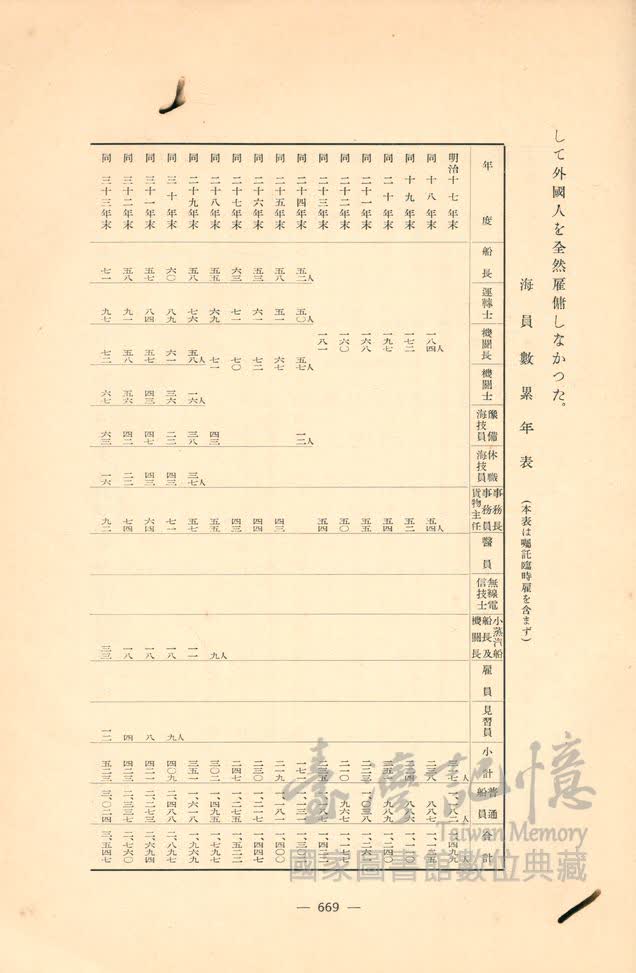 して外國人を全然雇傭しなかつた。
海員數累年表 (本表は囑託臨時雇を含まず)
年度 船長 運轉士 機關長 機關士 豫備海技員 休職海技員 事務長事務員貨物主任 醫員 無線電信技士 小蒸汽船船長及機關長 雇員 見習員 小計 普通船員 合計
明治十七年末 三一七人 一、一八二人 一、四九九人
同十八年末 一八四人 五四人 二三八 八八七 一、一二五
同十九年末 一七二 五二 二二四 八八六 一、一一〇
同二十年末 一九七 五四 二五一 九八九 一、二四〇
同二十一年末 一六八 五五 二二三 一、〇三八 一、二六一
同二十二年末 一六〇 五〇 二一〇 九六七 一、一七七
同二十三年末 一八一 五四 二三五 一、一八七 一、四二二
同二十四年末 五二人 五〇人 五七人 一二人 一七一 一、一三一 一、三〇二
同二十五年末 五八 五一 六七 四三 二一九 一、一八一 一、四〇〇
同二十六年末 五三 六一 七二 四四 二三〇 一、二一七 一、四四七
同二十七年末 六三 七一 七〇 四三 二四七 一、二七五 一、五二二
同二十八年末 五五 六九 七一 四三 五五 九人 三〇二 一、四九五 一、七九七
同二十九年末 五八 七六 五八人 一六人 三八 三七人 五七 一一 三五一 一、六一八 一、九六九
同三十年末 六〇 八九 六一 三六 二二 四三 七一 一八 九人 四〇九 二、四八八 二、八九七
同三十一年末 五七 八四 五七 四三 四七 四三 六四 一八 八 四二一 二、二七三 二、六九四
同三十二年末 五八 九一 五八 五六 四二 二二 七四 一八 四 四二三 二、三三七 二、七六〇
同三十三年末 七一 九七 七二 六七 六三 一六 九二 三三 一二 五二三 三、〇二四 三、五四七
臺灣記憶
Taiwan Memory
國家圖書館數位典藏
— 669 —